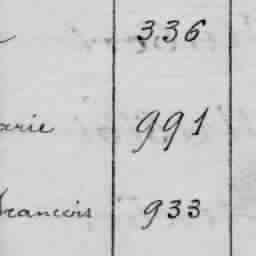 336
arie 991
francois 933